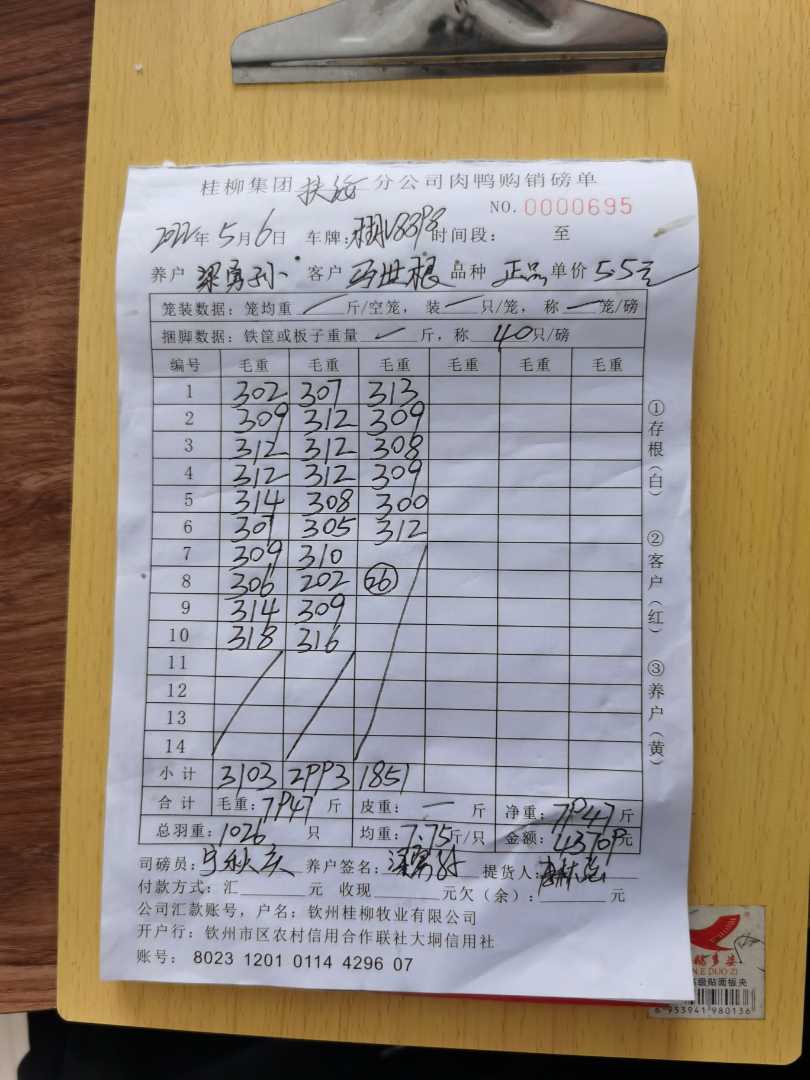 桂柳集团 扶绥 分公司肉鸭购销磅单
NO. 0000695
2022年 5月 6日 车牌: 时间段: 至
养户 梁勇孙 客户 世根 品种 正品 单价 5.5元
笼装数据: 笼均重 一 斤/空笼, 装 一 只/笼, 称 一 笼/磅
捆脚数据: 铁筐或板子重量 一 斤, 称 40 只/磅
编号 毛重 毛重 毛重 毛重 毛重 毛重
1 302 307 313
2 309 312 309
3 312 312 308
4 312 312 309
5 314 308 300
6 307 305 312
7 309 310
8 306 202 26
9 314 309
10 318 316
11
12
13
14
小计 3103 2993 1851
合计 毛重: 7947 斤 皮重: 一 斤 净重: 7947 斤
总羽重: 1026 只 均重: 7.75 斤/只 金额: 43709 元
司磅员: 宁秋庆 养户签名: 梁勇孙 提货人:
付款方式: 汇 元 收现 元欠(余): 元
公司汇款账号, 户名: 钦州桂柳牧业有限公司
开户行: 钦州市区农村信用合作联社大垌信用社
账号: 8023 1201 0114 4296 07
①存根(白) ②客户(红) ③养户(黄)
级贴面板夹
6 953941 980136